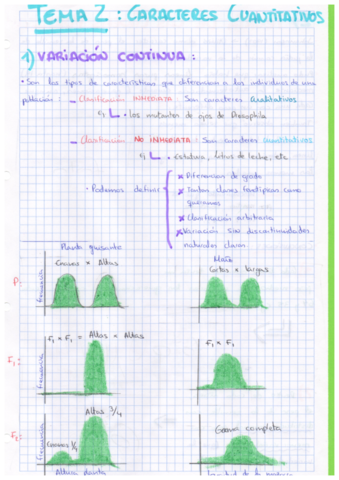 TEMA 2: CARACTERES CUANTITATIVOS
1) VARIACIÓN CONTINUA:
• Son los tipos de características que diferencian a los individuos de una
población: - Clasificación INMEDIATA: Son caracteres Cualitativos
Ej • los mutantes de ojos de Drosophila
- Clasificación NO INMEDIATA: Son caracteres Cuantitativos
Ej • Estatura, litros de leche, etc
• Podemos definir
* Diferencian de grado
* Tantas clases fenotípicas como
queramos
* Clasificación arbitraria
* Variación sin discontinuidades
naturales claras.
Planta guisante
Enanas x Altas
Maíz
Cortas x largas
P:
Frecuencia
F1:
F1 x F1 = Altas x Altas
F1 x F1
Frecuencia
F2:
Altas 3/4
Enanas 1/4
Frecuencia
Gama completa
Altura planta